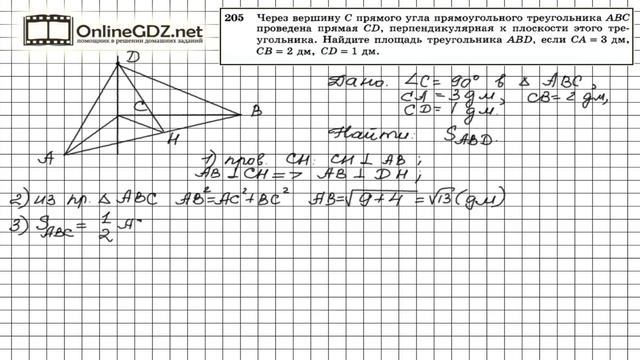 OnlineGDZ.com
помощник в решении домашних заданий
205 Через вершину C прямого угла прямоугольного треугольника ABC
проведена прямая CD, перпендикулярная к плоскости этого тре-
угольника. Найдите площадь треугольника ABD, если CA = 3 дм,
CB = 2 дм, CD = 1 дм.
D
C
B
A
H
Дано: ∠C = 90° в △ ABC,
CA = 3 дм, CB = 2 дм,
CD = 1 дм.
Найти: S_ABD.
1) пров. CH: CH ⊥ AB;
AB ⊥ CH => AB ⊥ DH;
2) из пр. △ ABC AB² = AC² + BC² AB = √9+4 = √13 (дм)
3) S_ABC = 1/2 A